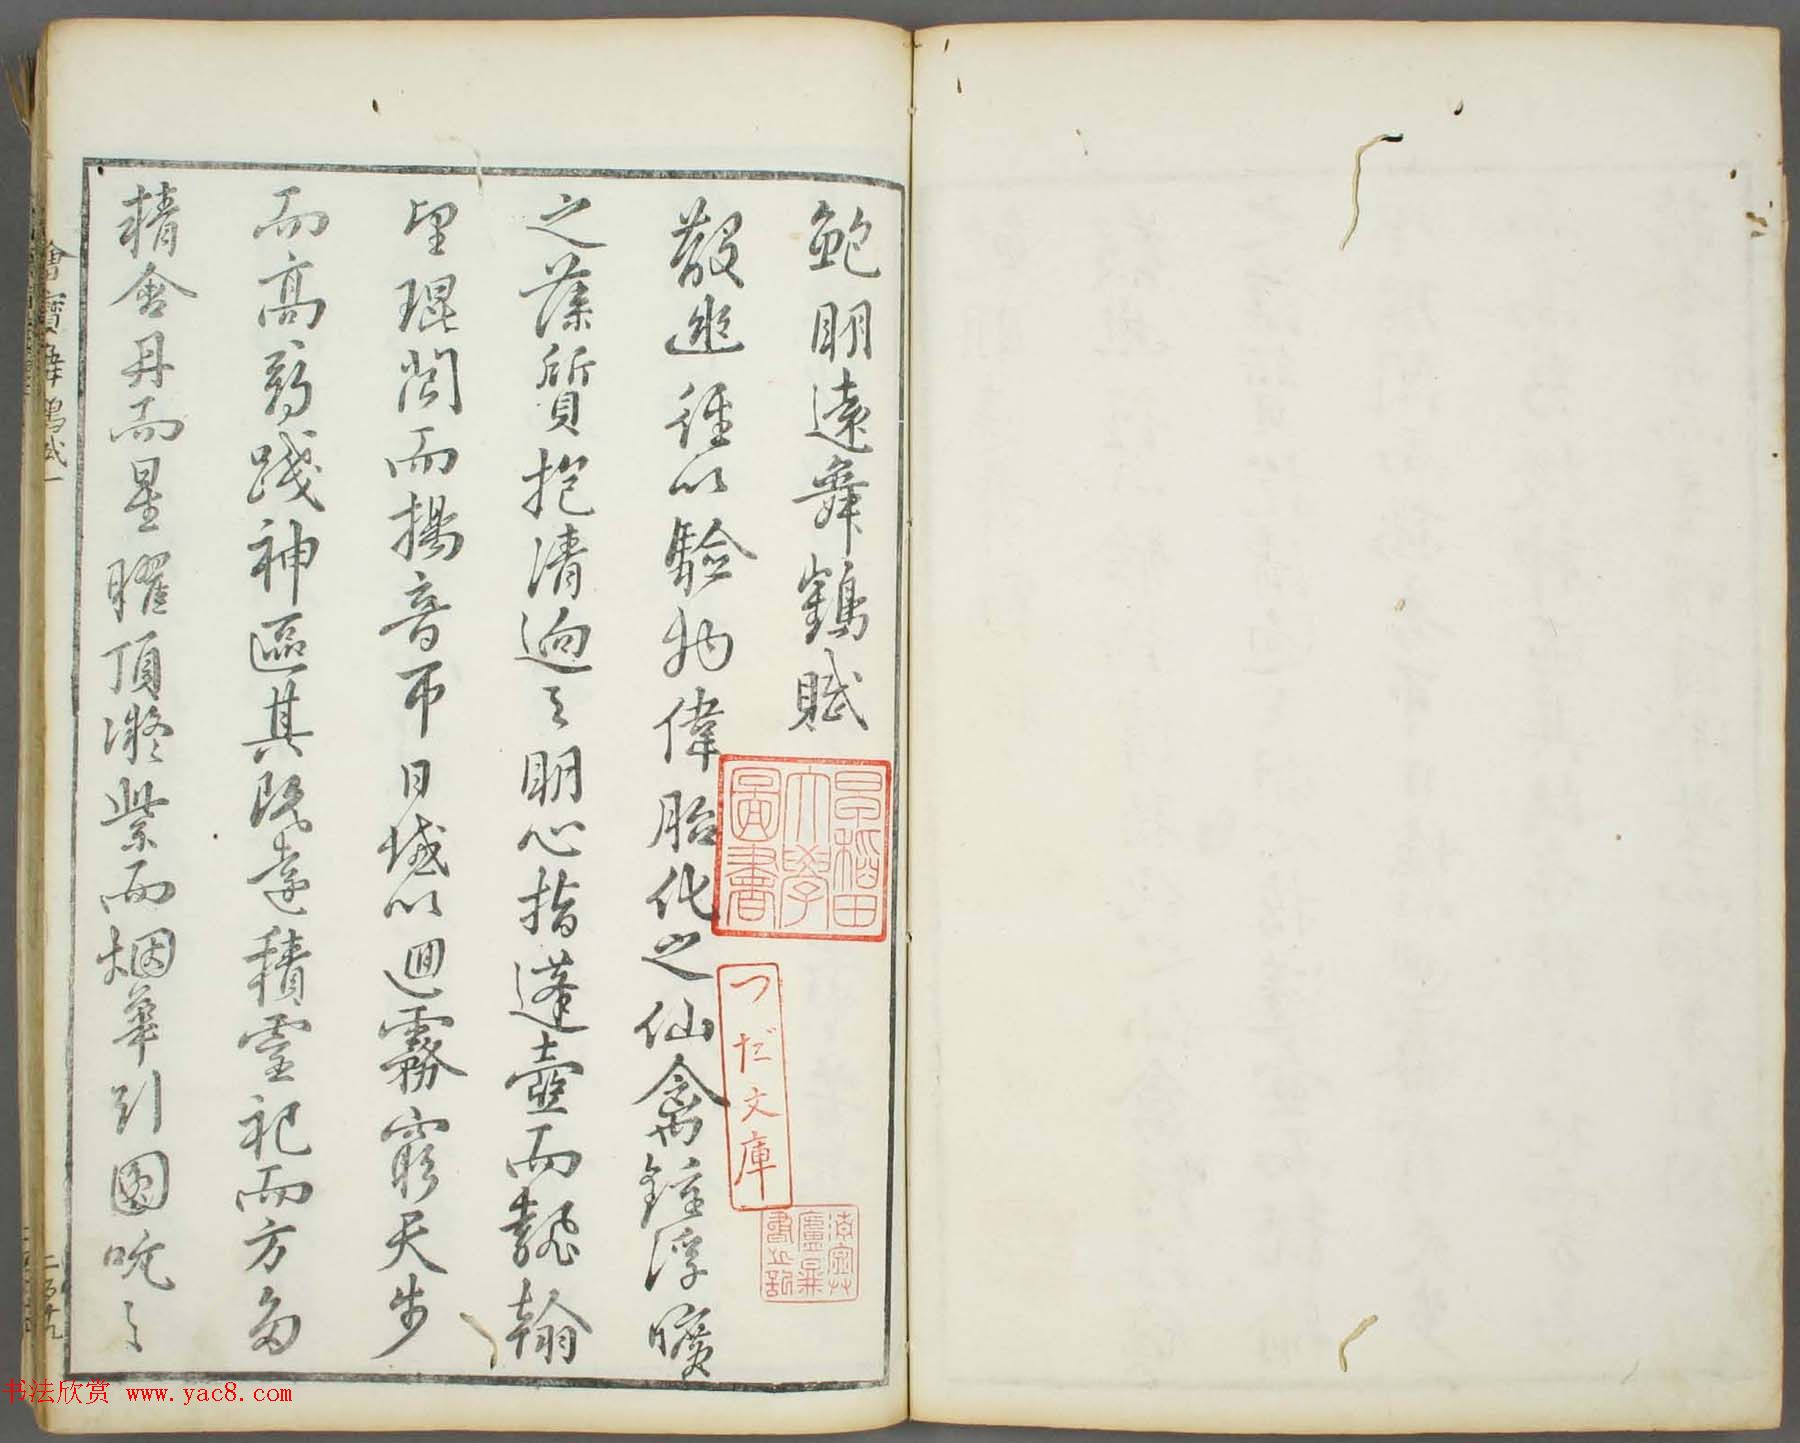 鮑明遠舞鶴賦
散幽經以驗物偉胎化之仙禽鍾浮曠
之藻質抱清迥之明心指蓬壺而翻翰
望琨閬而揚音帀日域以迴霧窮天步
而高尋踐神區其既遠積靈祀而方多
精含丹而星曜頂凝紫而烟華引圓吭之
早稲田大學圖書
つだ文庫
舞鶴賦一
书法欣赏 www.yac8.com